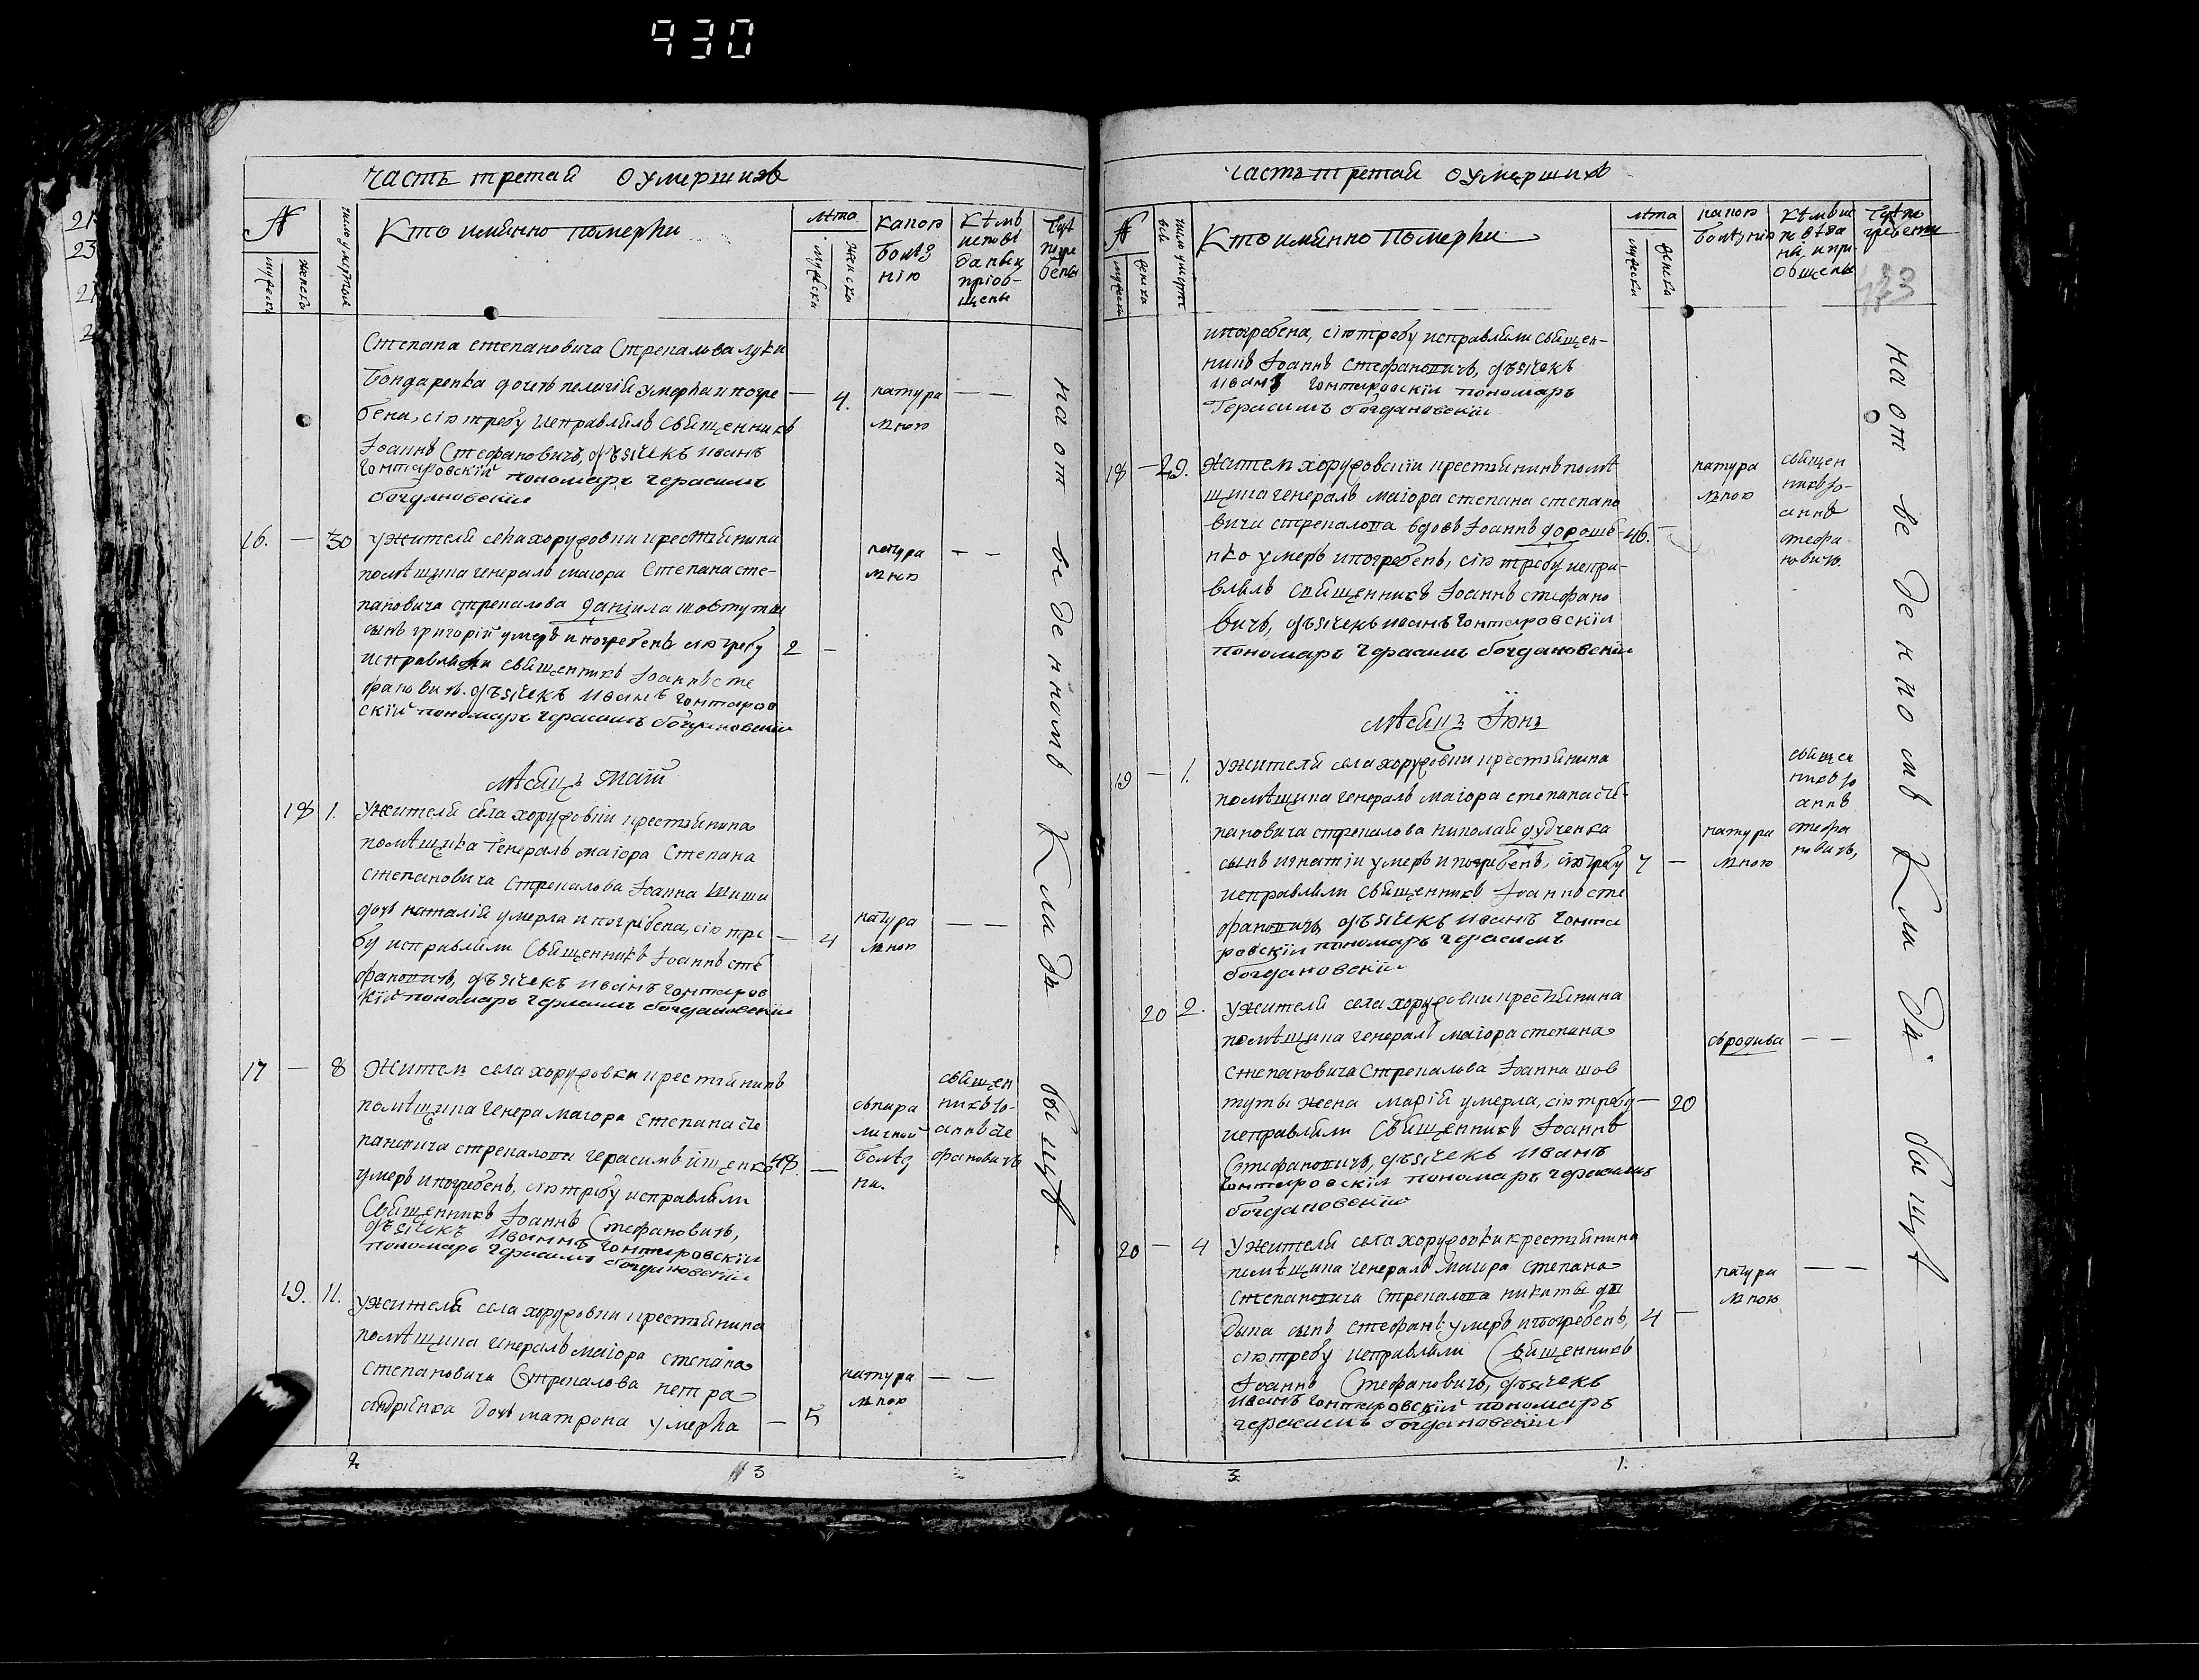 930
21
23
Часть третай о умершихъ
№
мужеска
женска
число умертвія
Кто имянно померли
лѣта
мужеска
женска
какою
болѣз
нію
Кѣмъ
исповѣ
даны и
пріоб-
щены
Гдѣ
погре
бены
Степана степановича Стрепалова луки
бондаренка дочь пелагій умерла и погре — 4. натура — —
бена, сію требу исправлялъ Священникъ льною
Іоаннъ Стефановичъ, дьячекъ иванъ
гонтаровскій пономарь герасимъ
богдановскій
16. — 30 у жителя села хоружовки крестьянина
помѣщика генералъ маіора Степана сте- натура льною — —
пановича стрепалова даніила шовтуты
сынъ григорій умеръ и погребенъ сію требу 2 —
исправляли священникъ Іоаннъ сте
фановичъ. дьячекъ иванъ гонтаров
скій пономарь герасимъ богдановскій
мѣсяцъ маій
18 1. у жителя села хоружовки крестьянина
помѣщика генералъ маіора Степана
степановича стрепалова Іоанна шиши
дочь наталій умерла и погребена, сію тре — 4 натура льною — —
бу исправляли Священникъ Іоаннъ сте
фановичъ, дьячекъ иванъ гонтаров
кій пономарь герасимъ богдановскій
17 — 8 Житель села хоружовки крестьянинъ
помѣщика генера маіора степана сте
пановича стрепалова герасимъ ищенко 48. —
умеръ и погребенъ, сію требу исправляли
Священникъ Іоаннъ Стефановичъ,
дьячекъ Иваннъ гонтаровскій
пономарь герасимъ богдановскій
священ
никъ Іо-
аннъ сте
фановичъ
19. 11. у жителя села хоружовки крестьянина
помѣщика генералъ маіора степана
степановича Стрепалова петра натура — —
андріенка дочь матрона умерла — 5 льною
на отведенномъ Кладбищѣ
2 3
Часть третай о умершихъ
№
мужеска
женска
Кто имянно Померли
лѣта
мужеска
женска
какою
болѣзнію
погребена, сію требу исправляли священ-
никъ Іоаннъ Стефановичъ, дьячекъ
иванъ гонтаровскій пономарь
Герасимъ богдановскій
18 — 29. Житель хоружовскій крестьянинъ помѣ
щика генералъ маіора степана степано
вича стрепалова вдовъ Іоаннъ дороше- 46. —
нко умеръ и погребенъ, сію требу испра-
влялъ Священникъ Іоаннъ стефано
вичъ, дьячекъ иванъ гонтаровскій
пономарь герасимъ богдановскій
натура
льною
священ
никъ Іо-
аннъ
стефа
новичъ.
мѣсяцъ Іюнь
19 — 1. у жителя села хоружовки крестьянина
помѣщика генералъ маіора степана сте-
пановича стрепалова николай дудченка
сынъ игнатій умеръ и погребенъ, сію требу 7 —
исправляли священникъ Іоаннъ сте
фановичъ, дьячекъ иванъ гонта
ровскій пономарь герасимъ
богдановскій
натура
льною
священ
никъ Іо
аннъ
стефа
новичъ,
20 2. у жителя села хоружовки крестьянина
помѣщика генералъ маіора степана
степановича Стрепалова Іоанна шов
туты жена марій умерла, сію требу — 20
исправляли Священникъ Іоаннъ
Стефановичъ, дьячекъ иванъ
гонтаровскій пономарь герасимъ
богдановскій
съ родива — —
20 — 4 у жителя села хоружовки крестьянина
помѣщика генералъ маіора степана
степановича Стрепалова никиты ды
дыка сынъ стефанъ умеръ и погребенъ, 4 —
сію требу исправляли Священникъ
Іоаннъ Стефановичъ, дьячекъ
иванъ гонтаровскій пономарь
герасимъ богдановскій
натура — —
льною
на отведенномъ Кладбищѣ
3. 1.